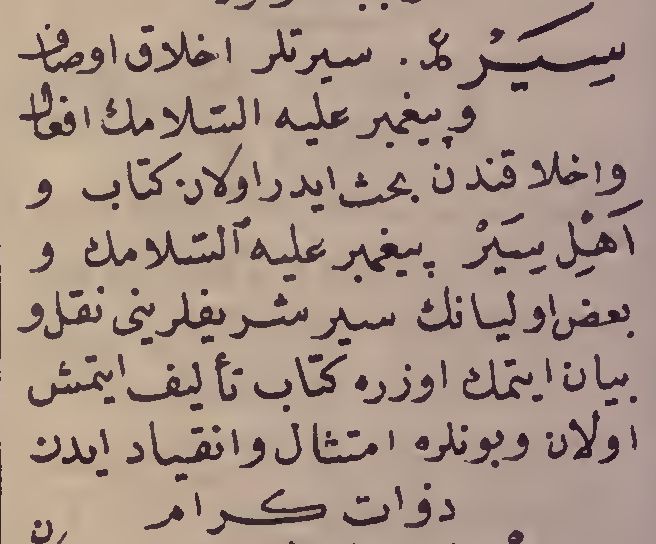 سِيَرْ ع. سیرتلر اخلاق اوصاف
و پیغمبر علیه السّلامك افعال
واخلاقندن بحث ایدر اولان كتاب و
اَهْلِ سِيَرْ پیغمبر علیه السّلامك و
بعض اولیانك سیر شریفلرینی نقل و
بیان ایتمك اوزره كتاب تألیف ایتمش
اولان وبونلره امتثال وانقیاد ایدن
ذوات كرام